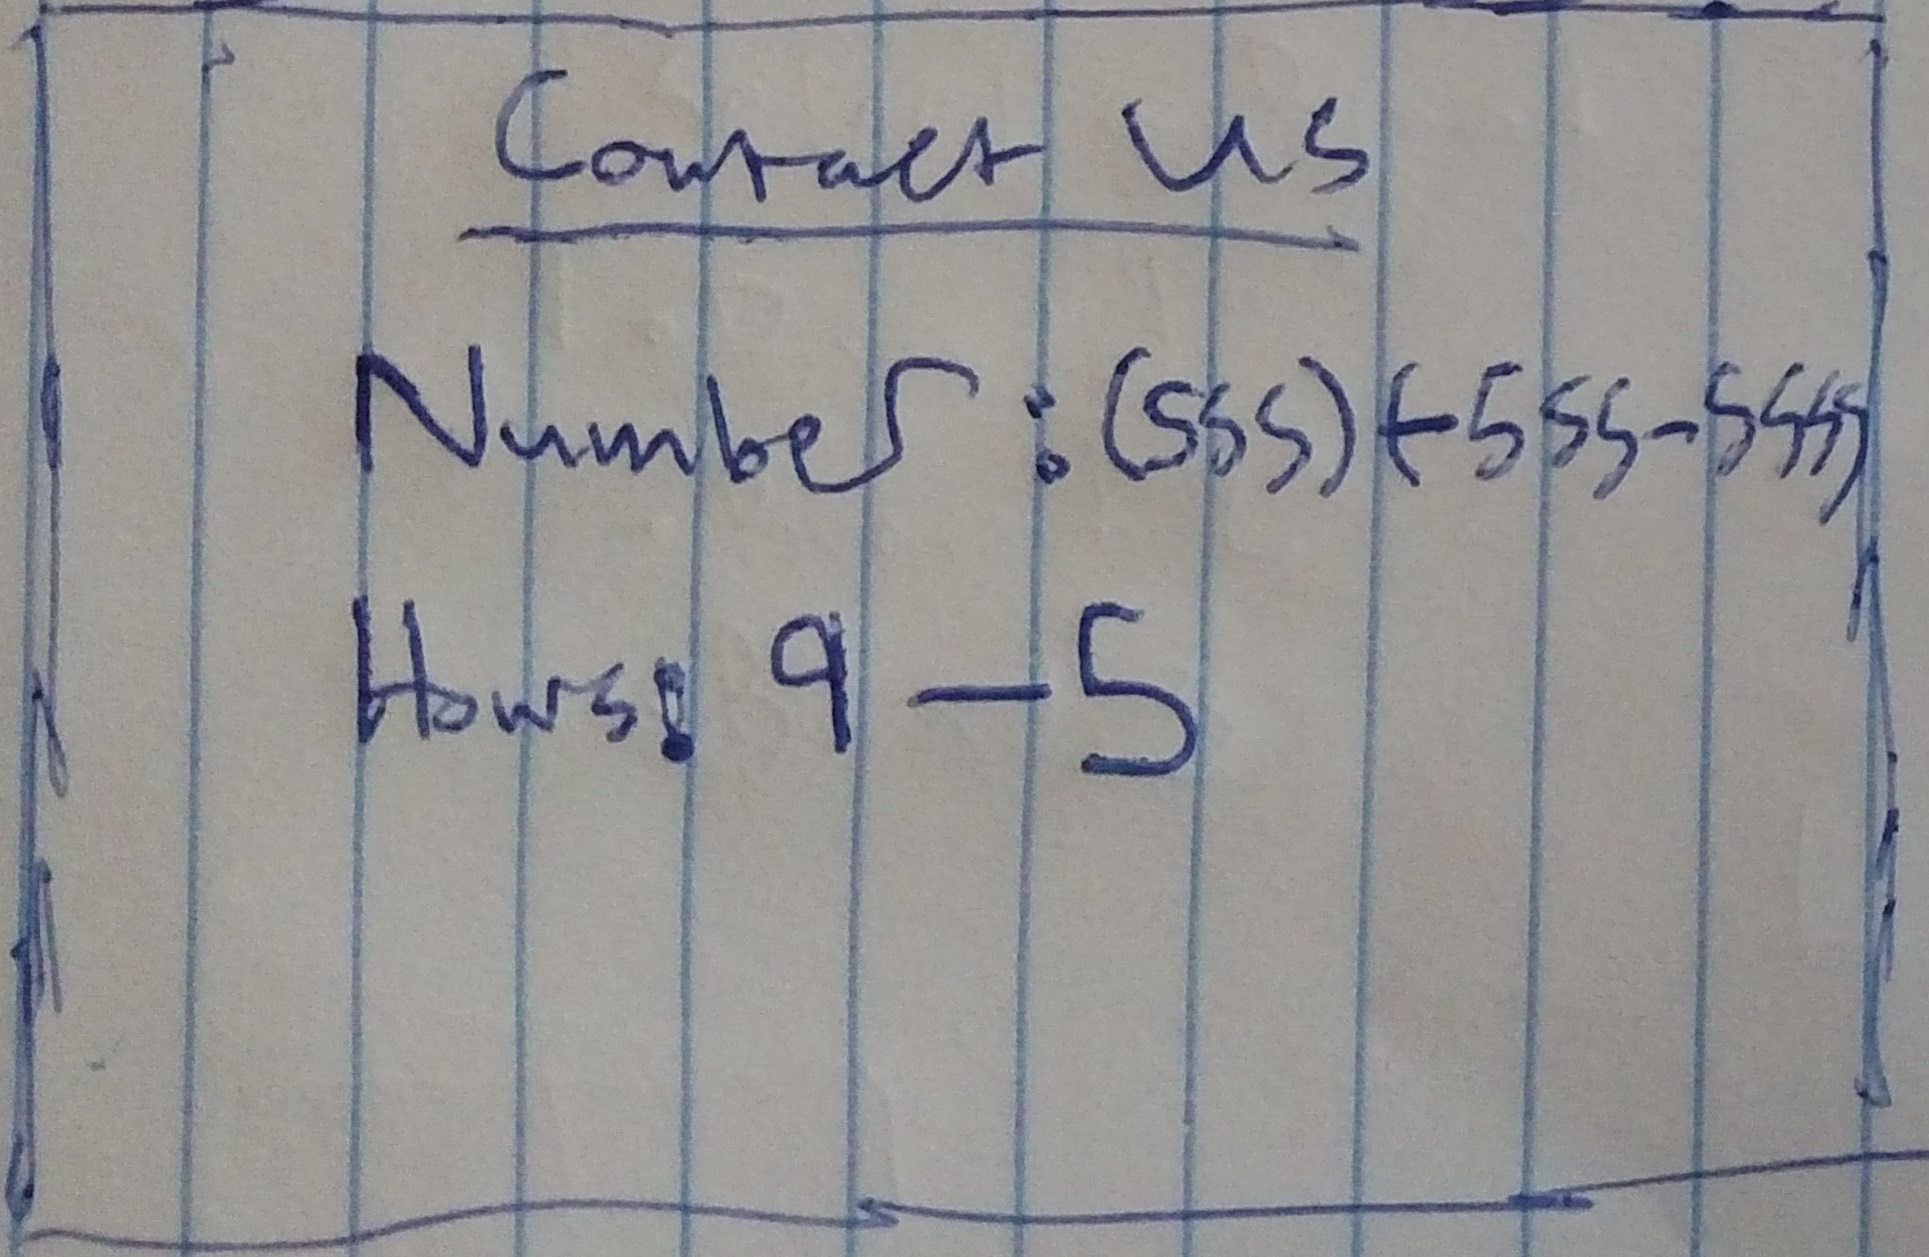 Contact Us
Number: (555)-555-5555
Hours: 9-5